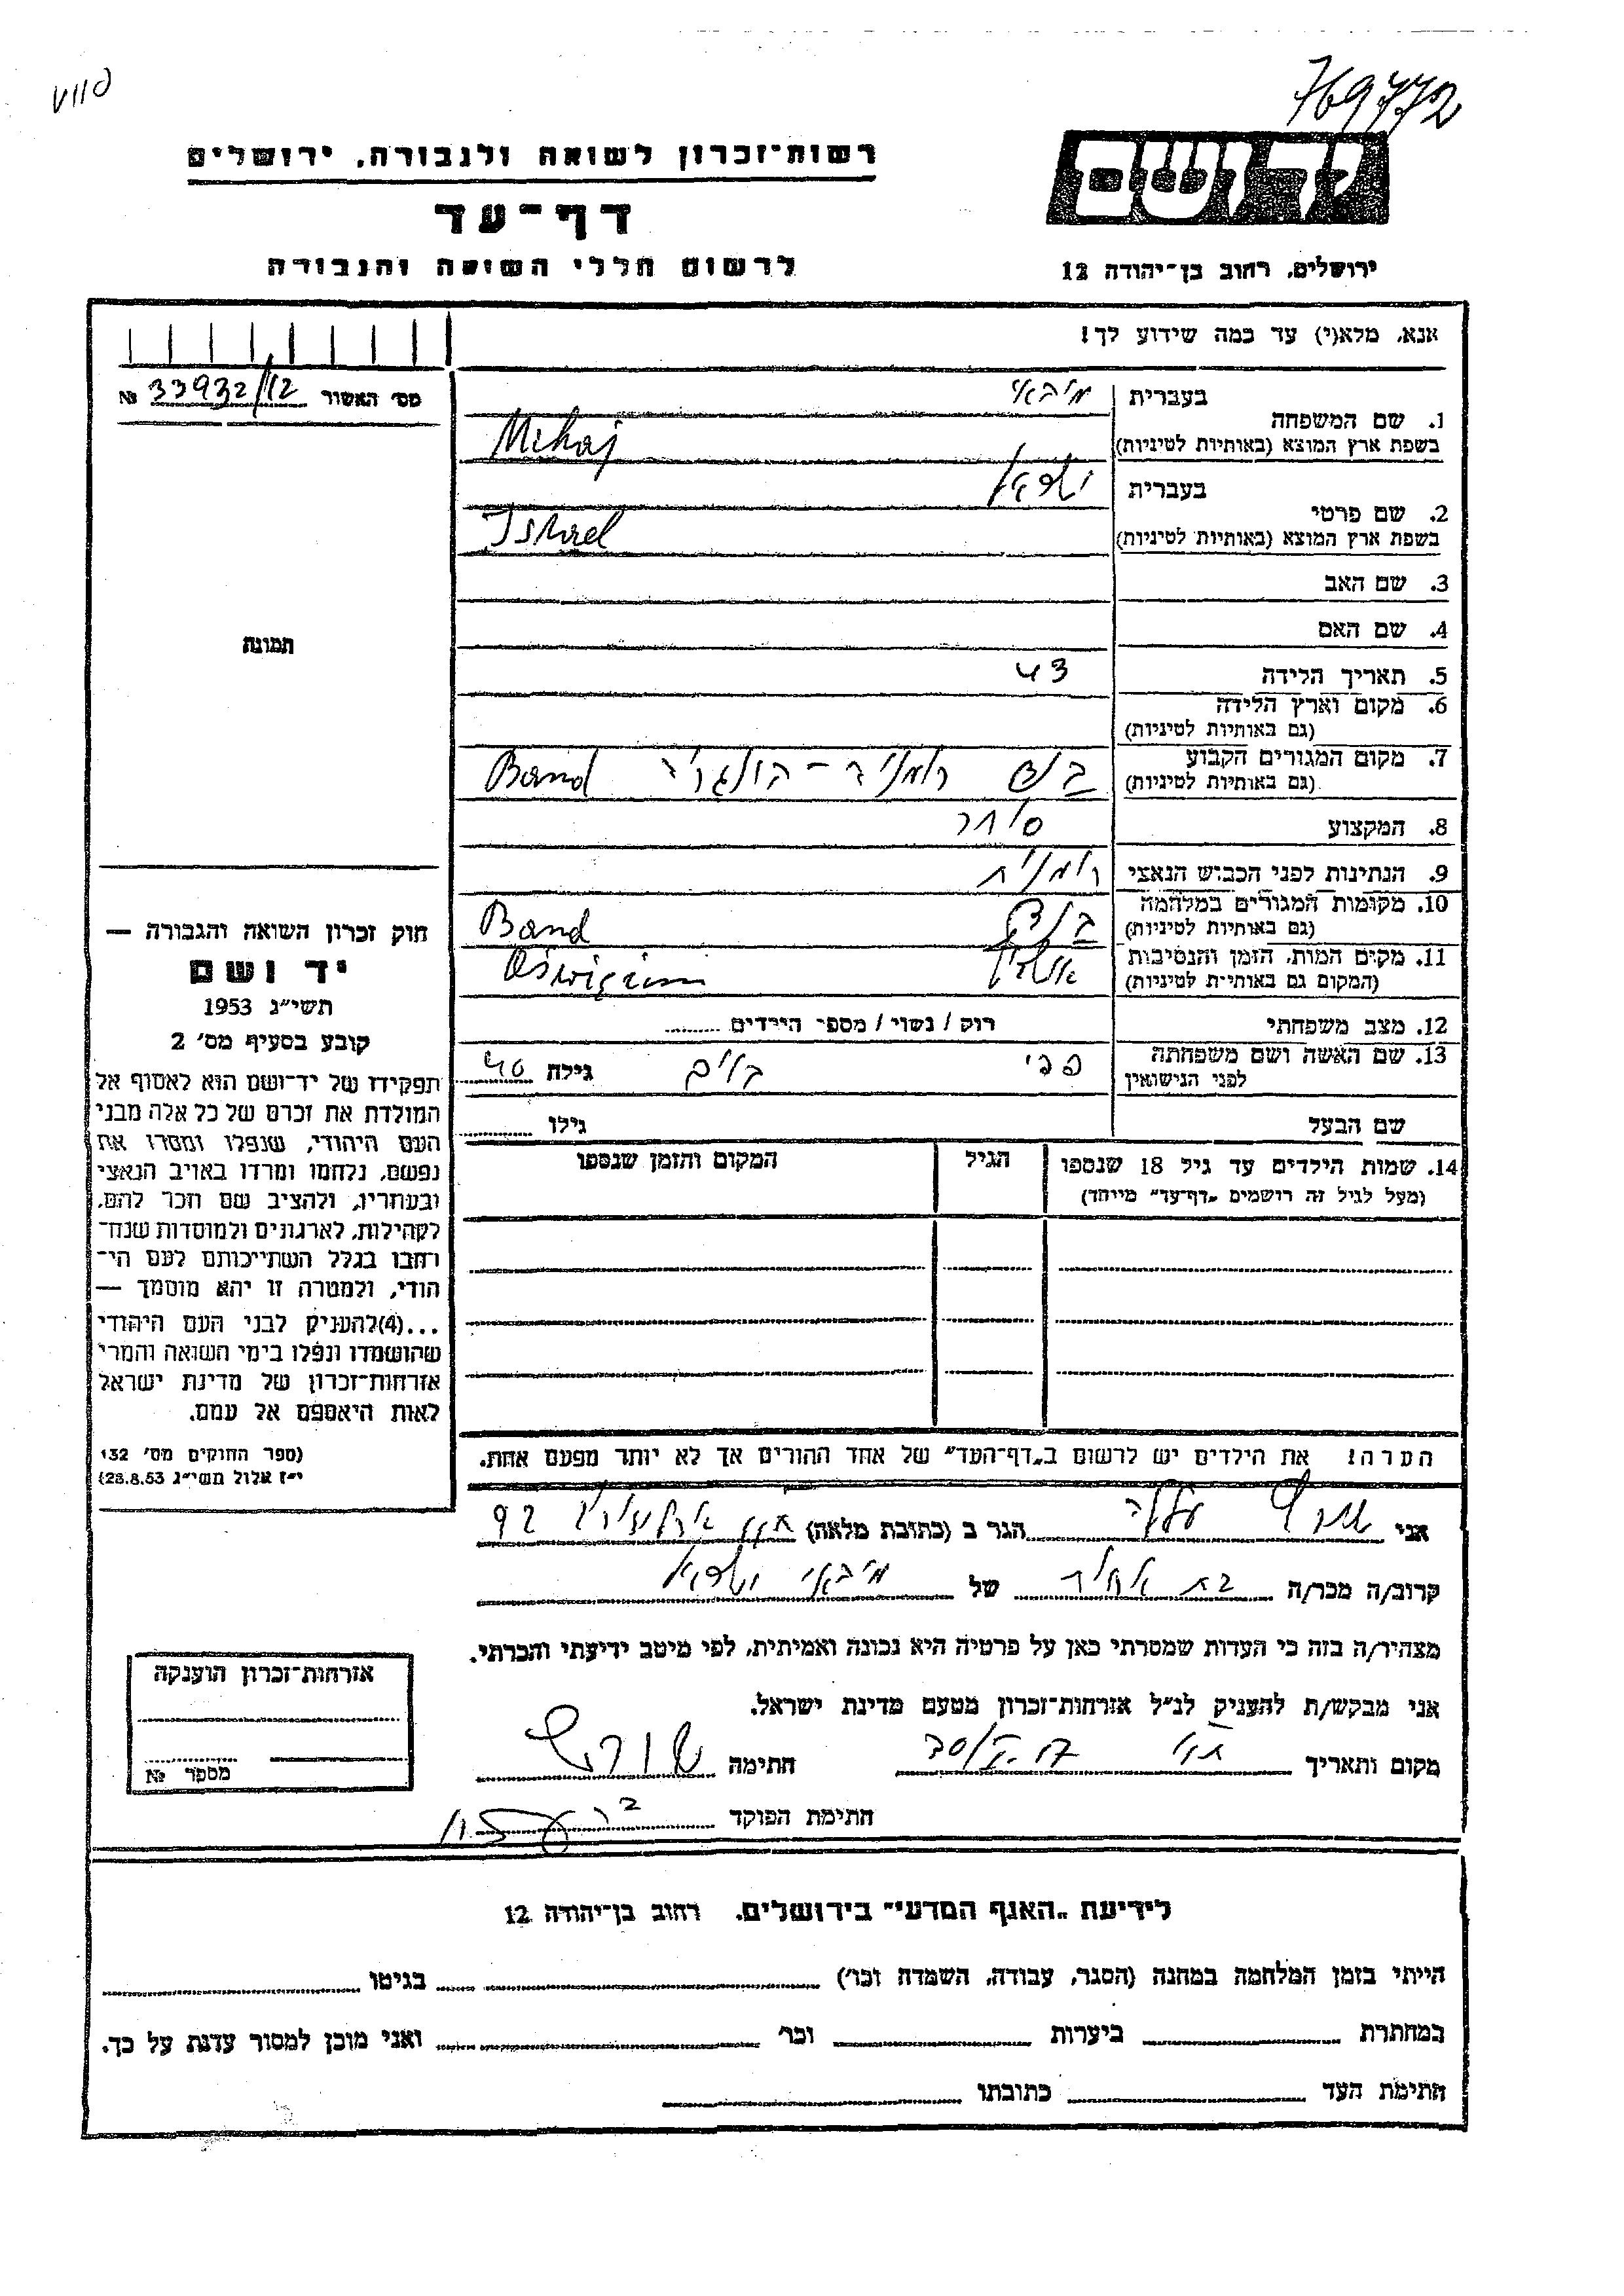 769772
רשות־זכרון לשואה ולגבורה, ירושלים
יד ושם
דף־עד
לרשום חללי השואה והגבורה
ירושלים, רחוב בן־יהודה 12
אנא, מלא(י) עד כמה שידוע לך!
מס׳ האשור 33932/12 №
1. שם המשפחה
בעברית
מיהאי
בשפת ארץ המוצא (באותיות לטיניות)
Mihaj
2. שם פרטי
בעברית
ישראל
בשפת ארץ המוצא (באותיות לטיניות)
Israel
3. שם האב
4. שם האם
5. תאריך הלידה 43
6. מקום וארץ הלידה
(גם באותיות לטיניות)
7. מקום המגורים הקבוע
(גם באותיות לטיניות)
Band
8. המקצוע סוחר
9. הנתינות לפני הכבוש הנאצי רומנית
10. מקומות המגורים במלחמה
(גם באותיות לטיניות)
Band
11. מקום המות, הזמן והנסיבות
(המקום גם באותיות לטיניות)
12. מצב משפחתי רוק / נשוי / מספר הילדים
13. שם האשה ושם משפחתה
לפני הנישואין
פרי בלום גילה 40
שם הבעל גילו
14. שמות הילדים עד גיל 18 שנספו
(מעל לגיל זה רושמים „דף־עד” מייחד)
הגיל
המקום והזמן שנספו
הערה! את הילדים יש לרשום ב„דף־העד” של אחד ההורים אך לא יותר מפעם אחת.
תמונה
חוק זכרון השואה והגבורה —
יד ושם
תשי״ג 1953
קובע בסעיף מס׳ 2
תפקידו של יד־ושם הוא לאסוף אל
המולדת את זכרם של כל אלה מבני
העם היהודי, שנפלו ומסרו את
נפשם, נלחמו ומרדו באויב הנאצי
ובעוזריו, ולהציב שם וזכר להם,
לקהילות, לארגונים ולמוסדות שנח־
רחבו בגלל השתייכותם לעם הי־
הודי, ולמטרה זו יהא מוסמך —
...(4)להעניק לבני העם היהודי
שהושמדו ונפלו בימי השואה והמרי
אזרחות־זכרון של מדינת ישראל
לאות היאספם אל עמם.
(ספר החוקים מס׳ 132
י״ז אלול תשי״ג 28.8.53)
אני
הגר ב (כתובת מלאה) 92
קרוב/ה מכר/ה של מיהאי ישראל
מצהיר/ה בזה כי העדות שמסרתי כאן על פרטיה היא נכונה ואמיתית, לפי מיטב ידיעתי והכרתי.
אני מבקש/ת להעניק לנ״ל אזרחות־זכרון מטעם מדינת ישראל.
מקום ותאריך
חתימה
חתימת הפוקד
אזרחות־זכרון הוענקה
מספר №
לידיעת „האגף המדעי” בירושלים, רחוב בן־יהודה 12
הייתי בזמן המלחמה במחנה (הסגר, עבודה, השמדה וכו׳) בגיטו
במחתרת ביערות וכו׳ ואני מוכן למסור עדות על כך.
חתימת העד כתובתו